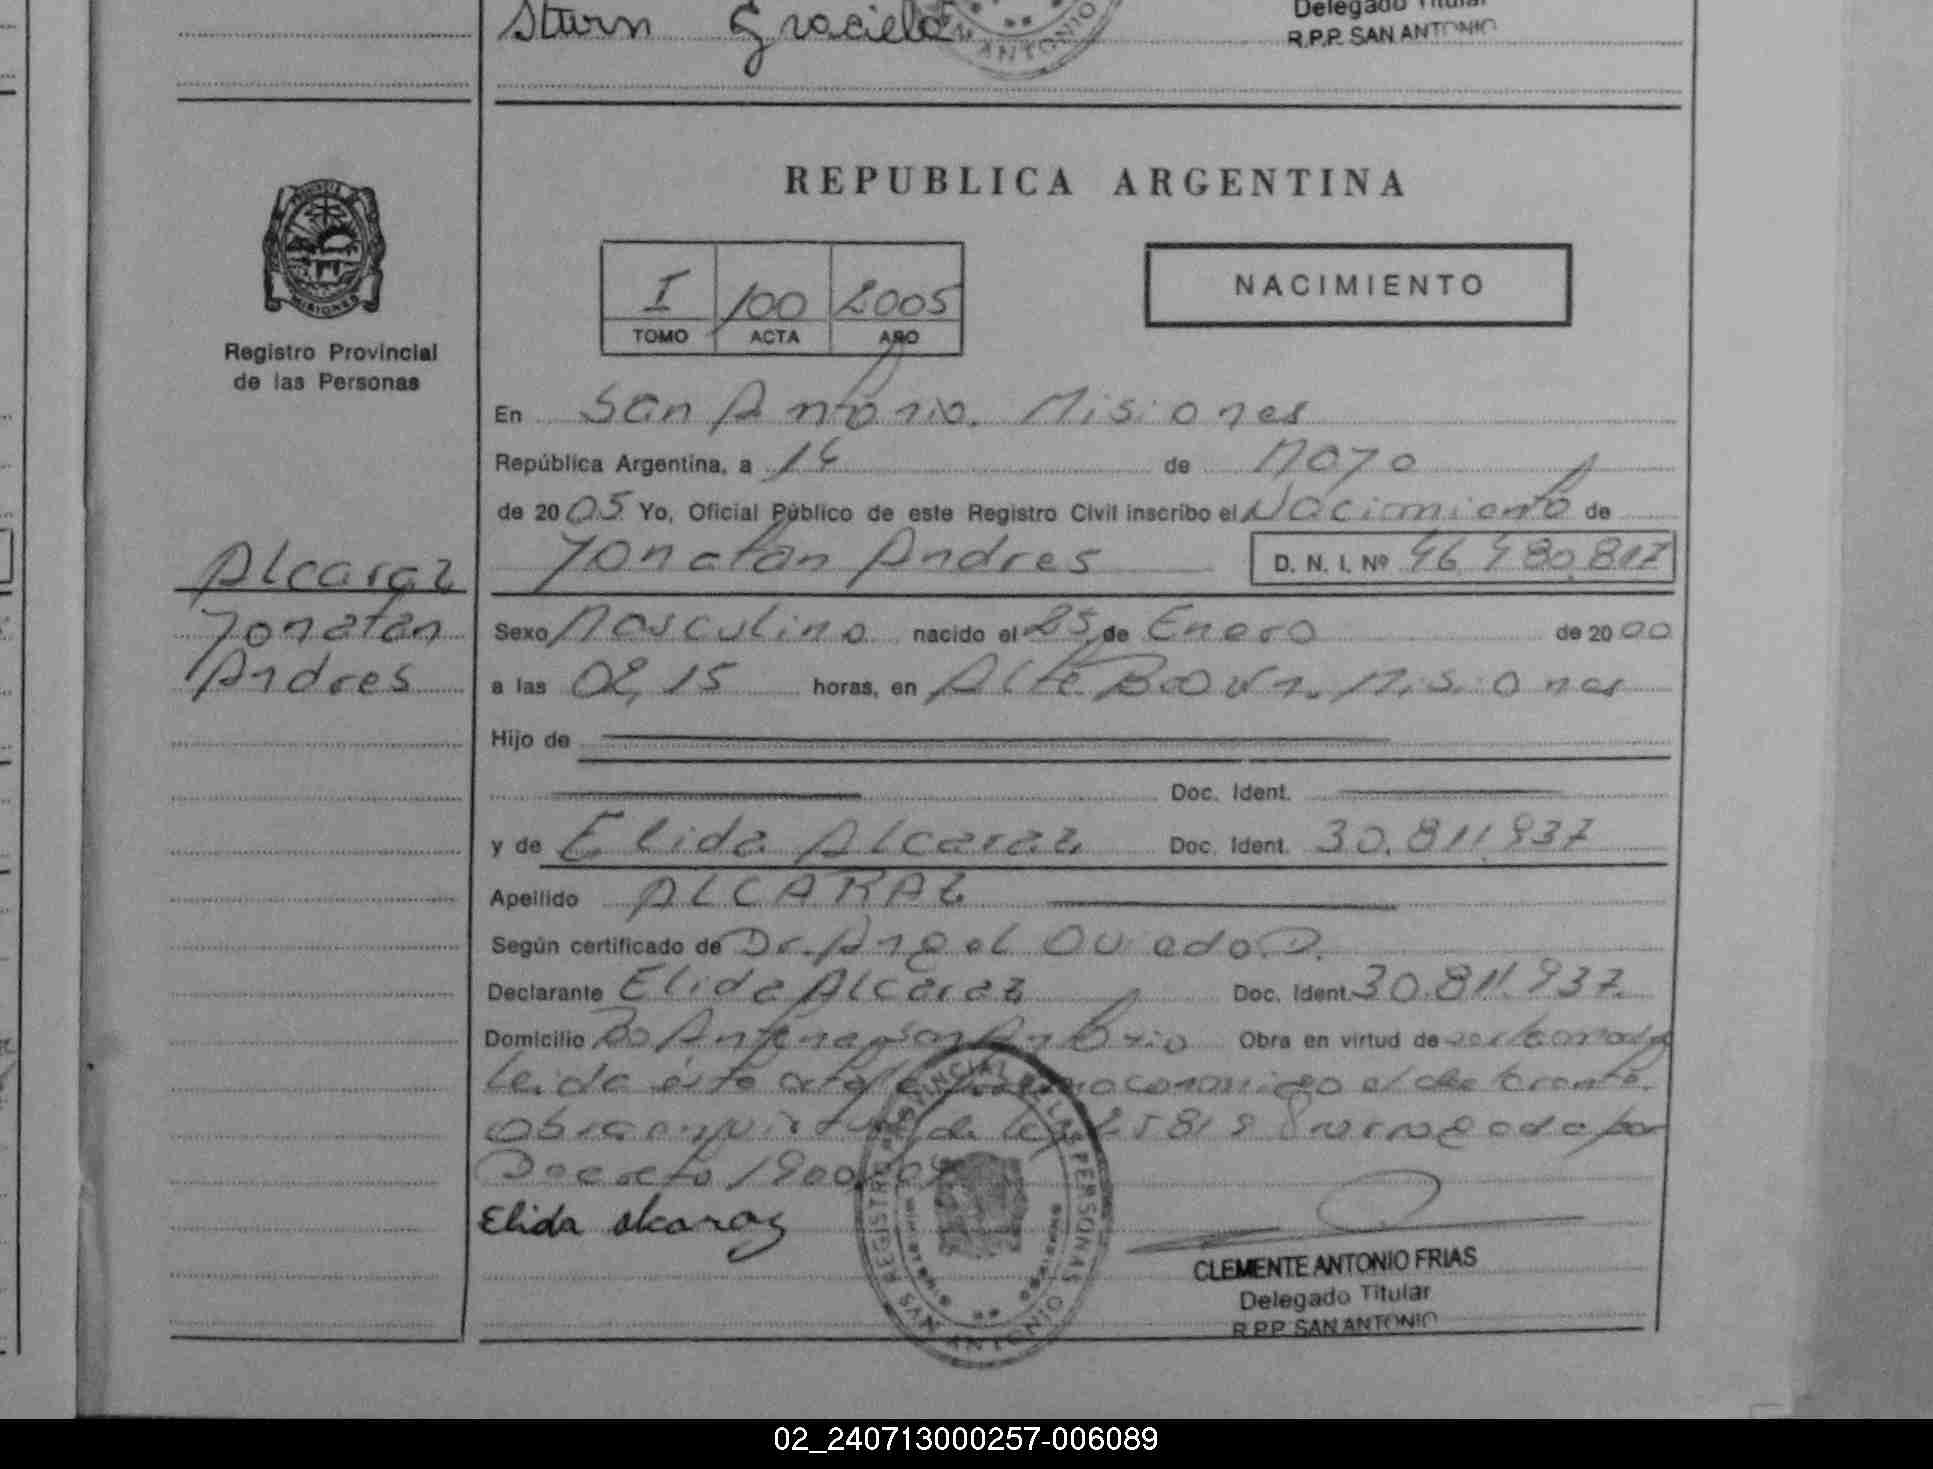 Sturn Graciela
Delegado Titular
R.P.P. SAN ANTONIO
Registro Provincial
de las Personas
REPUBLICA ARGENTINA
I 100 2005
TOMO ACTA AÑO
NACIMIENTO
En San Antonio. Misiones
República Argentina, a 14 de Mayo
de 2005 Yo, Oficial Público de este Registro Civil inscribo el Nacimiento de
Jonatan Andres D. N. I. Nº 46.480.817
Alcaraz
Jonatan
Andres
Sexo Masculino nacido el 25 de Enero de 2000
a las 02,15 horas, en Alte Brown. Misiones
Hijo de
Doc. Ident.
y de Elida Alcaraz Doc. Ident. 30.811.937
Apellido ALCARAZ
Según certificado de Dr. Angel Ovedo D.
Declarante Elida Alcaraz Doc. Ident. 30.811.937
Domicilio Bo Antena San Antonio Obra en virtud de
Leida ésta acta el declarante
obra en virtud de Ley 25819 Prorrogada por
Decreto 1900/04
Elida Alcaraz
REGISTRO PROVINCIAL DE LAS PERSONAS
SAN ANTONIO
MISIONES
CLEMENTE ANTONIO FRIAS
Delegado Titular
R.P.P. SAN ANTONIO
02_240713000257-006089